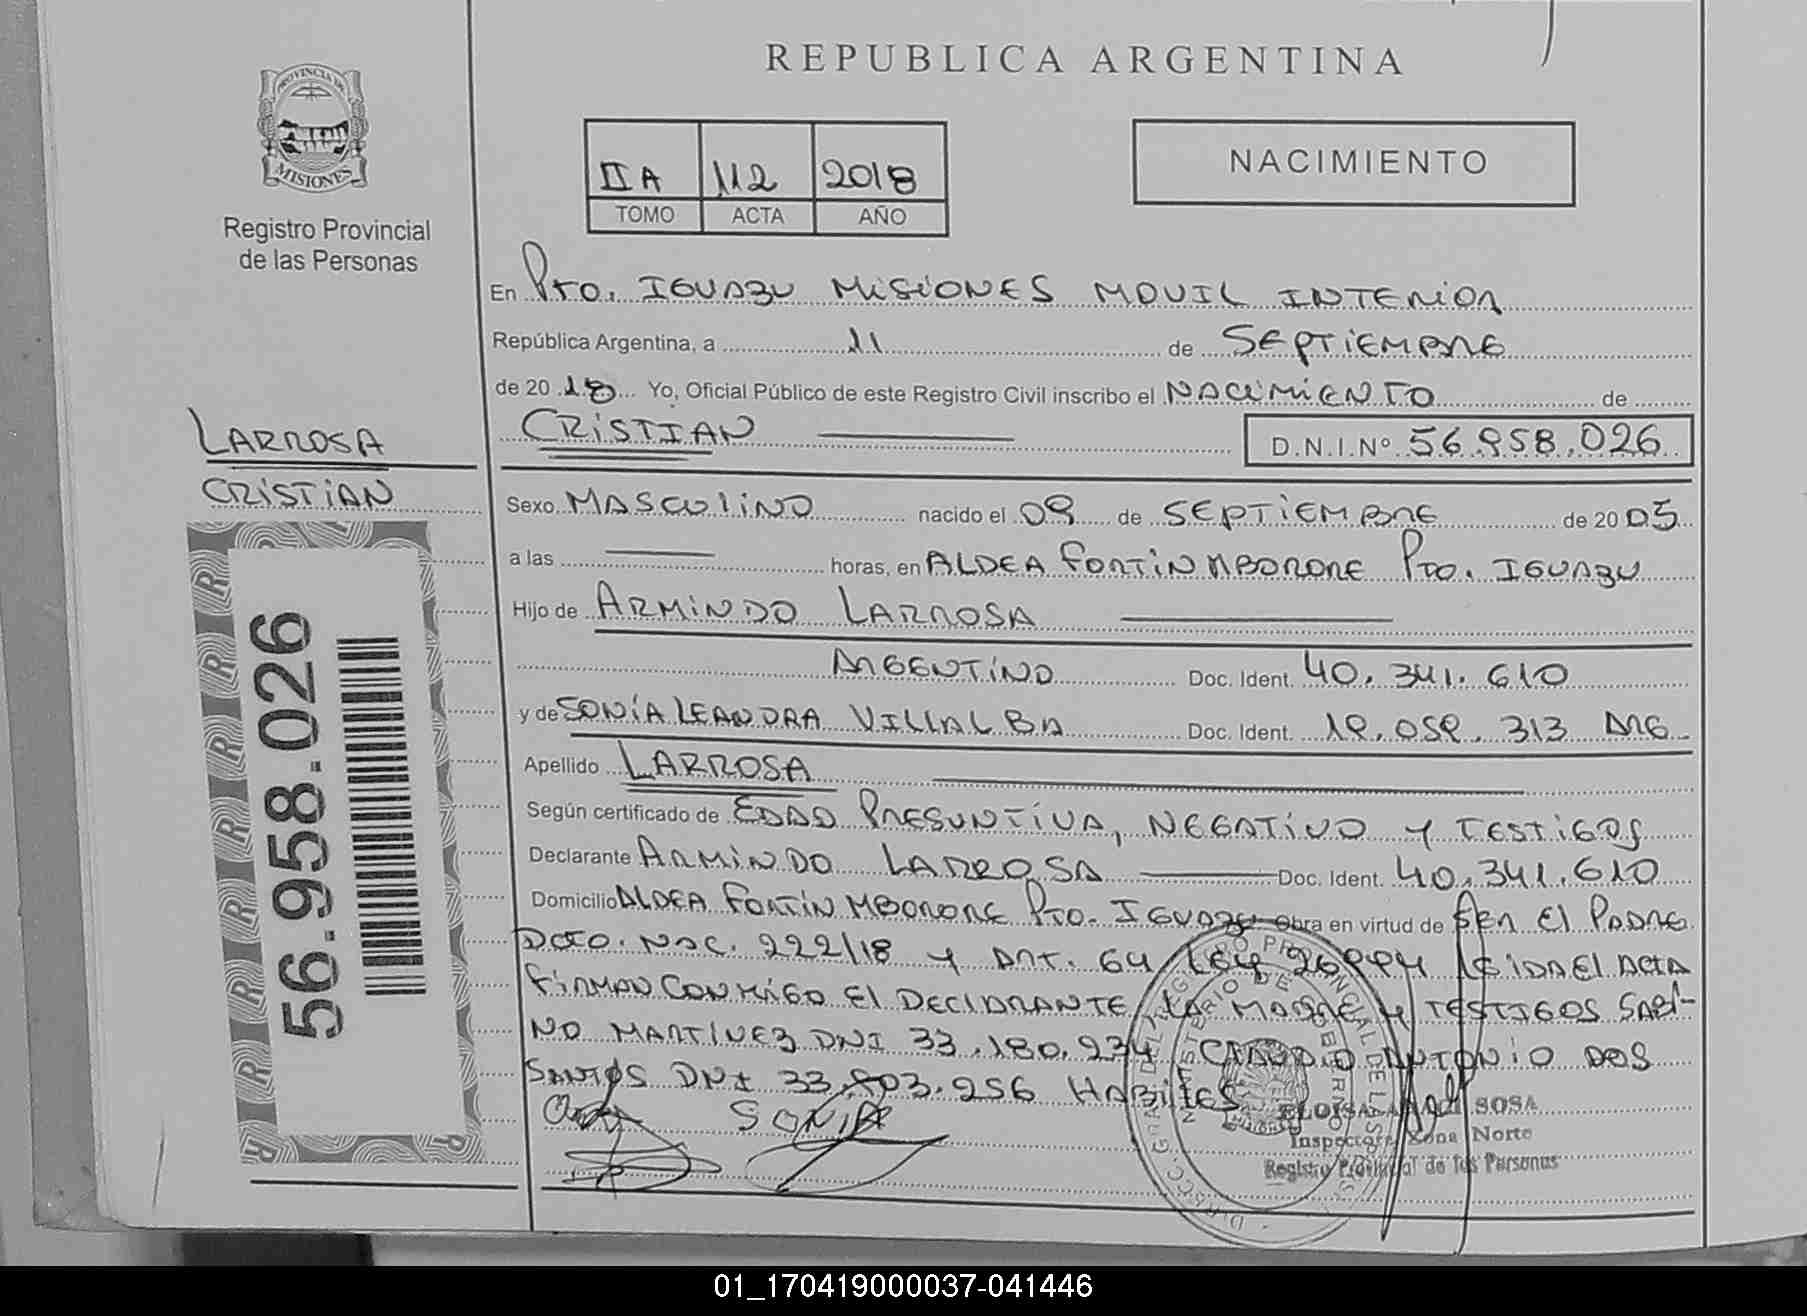 REPUBLICA ARGENTINA
PROVINCIA DE
MISIONES
Registro Provincial
de las Personas
II A 112 2018
TOMO ACTA AÑO
NACIMIENTO
En Pto. IGUAZU MISIONES MOVIL INTERIOR
República Argentina, a 11 de SEPTIEMBRE
de 20 18 Yo, Oficial Público de este Registro Civil inscribo el NACIMIENTO de
CRISTIAN D.N.I.Nº 56.958.026
LARROSA
CRISTIAN
Sexo MASCULINO nacido el 09 de SEPTIEMBRE de 20 05
a las horas, en ALDEA FORTIN MBORORE Pto. IGUAZU
Hijo de ARMINDO LARROSA
ARGENTINO Doc. Ident. 40.341.610
y de SONIA LEANDRA VILLALBA Doc. Ident. 313 ARG
Apellido LARROSA
Según certificado de EDAD PRESUNTIVA, NEGATIVO Y TESTIGOS
Declarante ARMINDO LARROSA Doc. Ident. 40.341.610
Domicilio ALDEA FORTIN MBORORE Pto. IGUAZU Obra en virtud de SER El PADRE
DCTO. NAC. 222/18 Y ART. 64 LEY LEIDA El ACTA
FIRMAN CONMIGO El DECLARANTE, LA MADRE Y TESTIGOS SABI-
NO MARTÍNEZ DNI 33.180.234 CLAUDIO ANTONIO DOS
SANTOS DNI 33.803.256 HABILES
SONIA
SOSA
Inspectora Zona Norte
Registro Provincial de las Personas
56.958.026
01_170419000037-041446